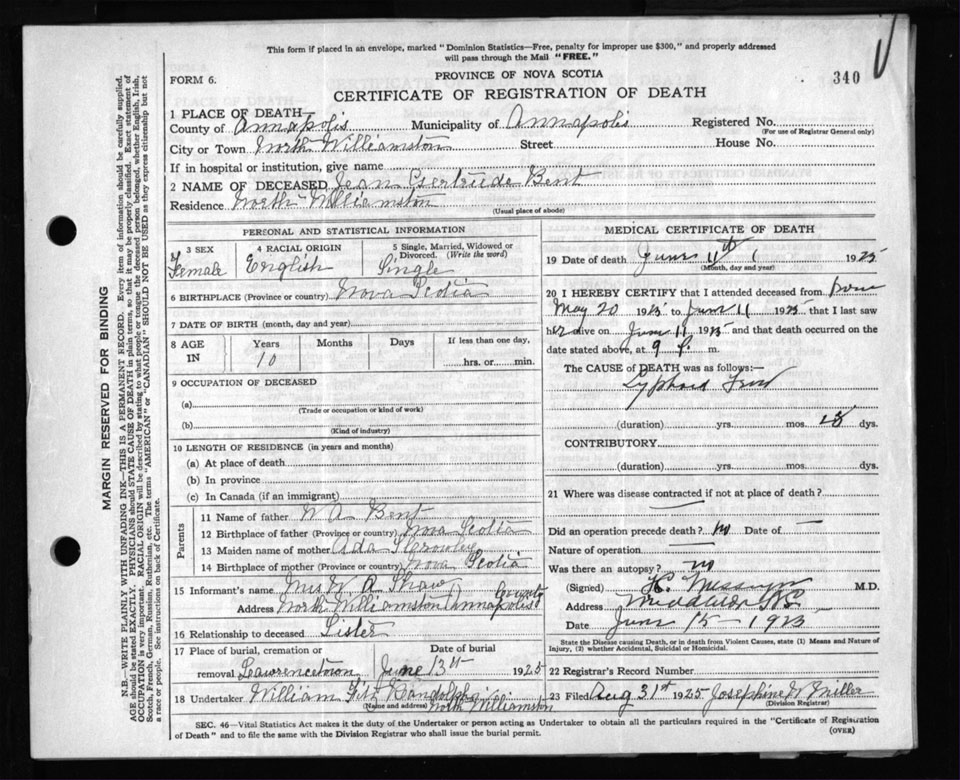 This form if placed in an envelope, marked "Dominion Statistics—Free, penalty for improper use $300," and properly addressed
will pass through the Mail "FREE."
PROVINCE OF NOVA SCOTIA
340
FORM 6.
CERTIFICATE OF REGISTRATION OF DEATH
1 PLACE OF DEATH—
County of Annapolis Municipality of Annapolis Registered No.
(For use of Registrar General only)
City or Town North Williamston Street House No.
If in hospital or institution, give name
2 NAME OF DECEASED Jean Gertrude Bent
Residence North Williamston
(Usual place of abode)
PERSONAL AND STATISTICAL INFORMATION
3 SEX 4 RACIAL ORIGIN 5 Single, Married, Widowed or
Divorced. (Write the word)
Female English Single
6 BIRTHPLACE (Province or country) Nova Scotia
7 DATE OF BIRTH (month, day and year)
8 AGE IN Years Months Days If less than one day,
10 hrs. or min.
9 OCCUPATION OF DECEASED
(a)
(Trade or occupation or kind of work)
(b)
(Kind of industry)
10 LENGTH OF RESIDENCE (in years and months)
(a) At place of death
(b) In province
(c) In Canada (if an immigrant)
Parents
11 Name of father W A Bent
12 Birthplace of father (Province or country) Nova Scotia
13 Maiden name of mother Ada
14 Birthplace of mother (Province or country) Nova Scotia
15 Informant's name Mrs W A Shaw
Address North Williamston Annapolis County
16 Relationship to deceased Sister
17 Place of burial, cremation or Date of burial
removal Lawrencetown June 13th 1925
18 Undertaker William Fitz Randolph
(Name and address) North Williamston
MEDICAL CERTIFICATE OF DEATH
19 Date of death June 11th 1925
(Month, day and year)
20 I HEREBY CERTIFY that I attended deceased from
May 20 1925 to June 11 1925 that I last saw
her alive on June 11 1925 and that death occurred on the
date stated above, at 9 P. m.
The CAUSE of DEATH was as follows:—
Typhoid Fever
(duration) yrs. mos. dys.
CONTRIBUTORY
(duration) yrs. mos. dys.
21 Where was disease contracted if not at place of death?
Did an operation precede death? no Date of —
Nature of operation
Was there an autopsy? no
(Signed) M.D.
Address Middleton N.S.
Date June 15 - 1925
State the Disease causing Death, or in death from Violent Causes, state (1) Means and Nature of
Injury, (2) whether Accidental, Suicidal or Homicidal.
22 Registrar's Record Number
23 Filed Aug 31st 1925 Josephine W Miller
(Division Registrar)
SEC. 46—Vital Statistics Act makes it the duty of the Undertaker or person acting as Undertaker to obtain all the particulars required in the "Certificate of Registration
of Death" and to file the same with the Division Registrar who shall issue the burial permit.
(OVER)
MARGIN RESERVED FOR BINDING
N.B.—WRITE PLAINLY WITH UNFADING INK—THIS IS A PERMANENT RECORD. Every item of information should be carefully supplied.
AGE should be stated EXACTLY. PHYSICIANS should STATE CAUSE OF DEATH in plain terms, so that it may be properly classified. Exact statement of
OCCUPATION is very important. RACIAL ORIGIN will be described by stating to what people or tongue the deceased person belonged, whether English, Irish,
Scotch, French, German, Russian, Ruthenian, etc. The terms "AMERICAN" or "CANADIAN" SHOULD NOT BE USED as they express citizenship but not
a race or people. See instructions on back of Certificate.